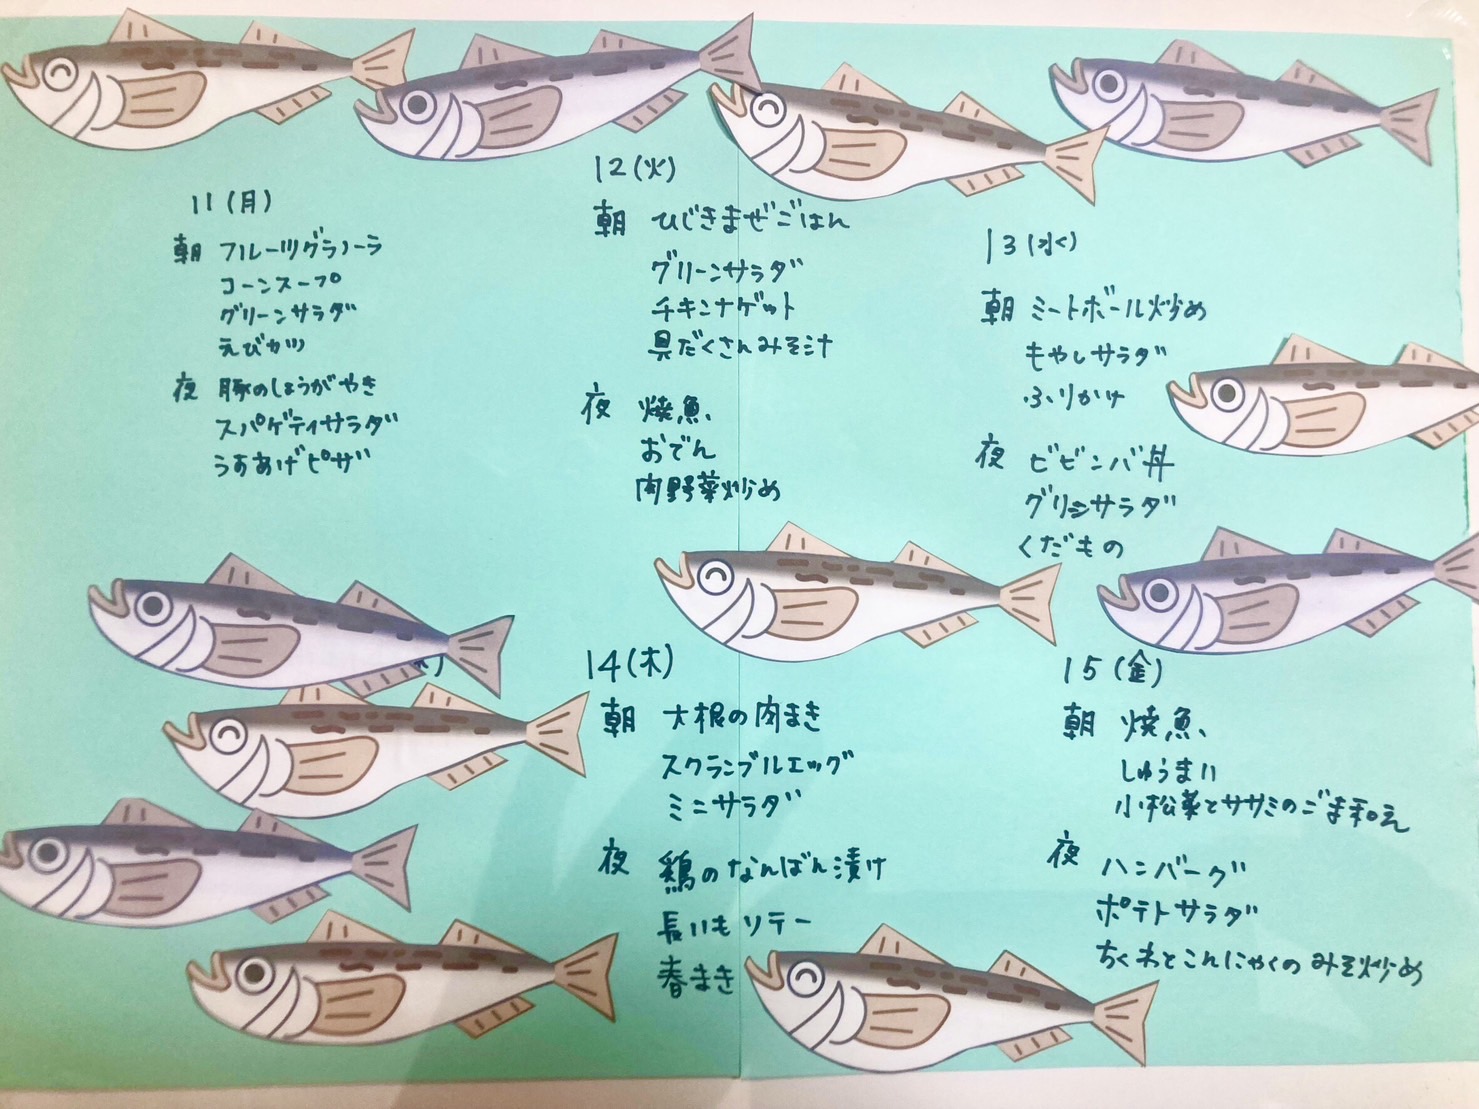 11(月)
朝 フルーツグラノーラ
コーンスープ
グリーンサラダ
えびかつ
夜 豚のしょうがやき
スパゲティサラダ
うすあげピザ
12(火)
朝 ひじきまぜごはん
グリーンサラダ
チキンナゲット
具だくさんみそ汁
夜 焼魚
おでん
肉野菜炒め
13(水)
朝 ミートボール炒め
もやしサラダ
ふりかけ
夜 ビビンバ丼
グリーンサラダ
くだもの
14(木)
朝 大根の肉まき
スクランブルエッグ
ミニサラダ
夜 鶏のなんばん漬け
長いもソテー
春まき
15(金)
朝 焼魚
しゅうまい
小松菜とササミのごま和え
夜 ハンバーグ
ポテトサラダ
ちくわとこんにゃくのみそ炒め